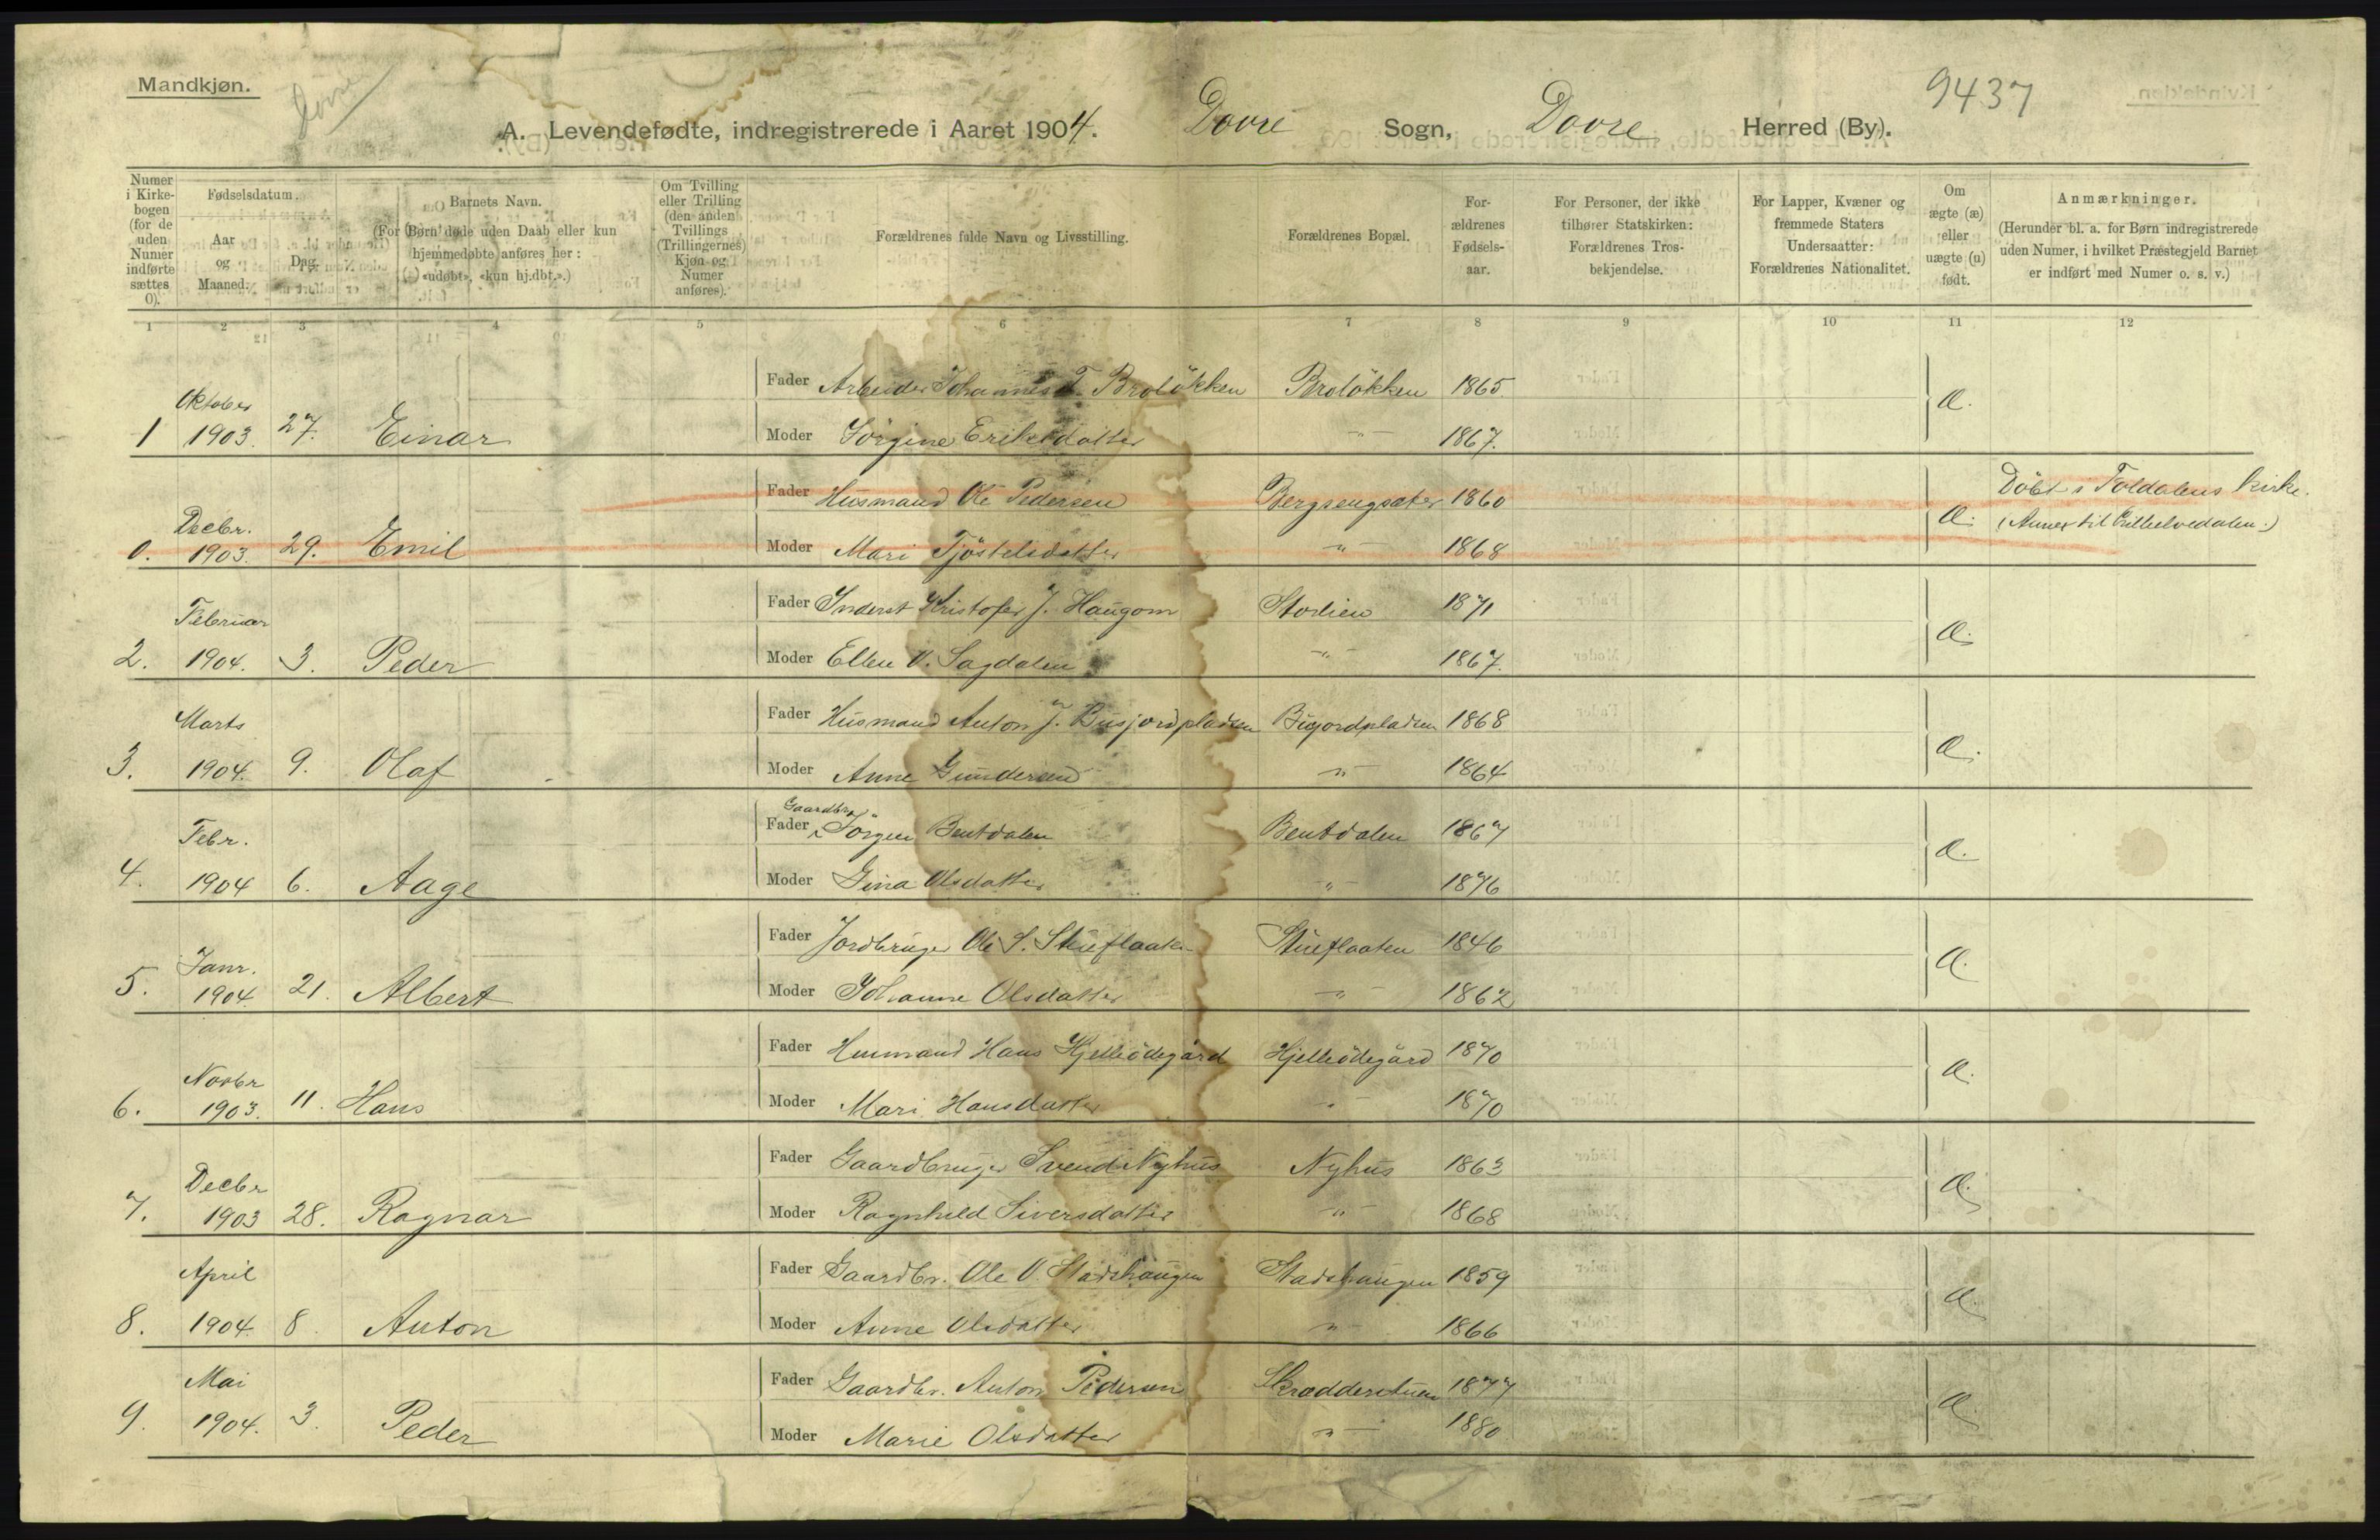 Mandkjøn.
Dovre
9437
A. Levendefødte, indregistrerede i Aaret 1904. Dovre Sogn, Dovre Herred (By).
Numer i Kirkebogen (for de uden Numer indførte sættes 0).
Fødselsdatum.
Aar og Maaned.
Dag.
Barnets Navn.
(For Børn døde uden Daab eller kun hjemmedøbte anføres her: (÷) «udøbt», «kun hj.dbt.».)
Om Tvilling eller Trilling (den anden Tvillings (Trillingernes) Kjøn og Numer anføres).
Forældrenes fulde Navn og Livsstilling.
Forældrenes Bopæl.
Forældrenes Fødselsaar.
For Personer, der ikke tilhører Statskirken: Forældrenes Trosbekjendelse.
For Lapper, Kvæner og fremmede Staters Undersaatter: Forældrenes Nationalitet.
Om ægte (æ) eller uægte (u) født.
Anmærkninger.
(Herunder bl. a. for Børn indregistrerede uden Numer, i hvilket Præstegjeld Barnet er indført med Numer o. s. v.)
1 2 3 4 5 6 7 8 9 10 11 12
Fader Arbeider Johannes T. Broløkken Broløkken 1865.
1 Oktober 1903. 27. Einar æ.
Moder Jörgine Eriksdatter -"- 1867.
Fader Husmand Ole Pedersen Bergsengsæter 1860 Döbt i Foldalens kirke.
0. Decbr. 1903. 29. Emil æ. (Annex til Lilleelvedalen.)
Moder Mari Tjöstelsdatter -"- 1868
Fader Inderst Kristofer J. Haugom Storlien 1871
2. Februar 1904. 3. Peder æ.
Moder Ellen O. Sagdalen -"- 1867.
Fader Husmand Anton J. Busjordpladsen Busjordpladsen 1868
3. Marts 1904. 9. Olaf æ.
Moder Anne Gundersen -"- 1864
Fader Gaardbr. Jörgen Bentdalen Bentdalen 1867
4. Febr. 1904 6. Aage æ.
Moder Gina Olsdatter -"- 1876
Fader Jordbruger Ole S. Stueflaaten Stueflaaten 1846
5. Janr. 1904. 21. Albert æ.
Moder Johanne Olsdatter -"- 1862
Fader Husmand Hans Hjelleödegård Hjelleödegård 1870
6. Novbr 1903. 11. Hans æ.
Moder Mari Hansdatter -"- 1870
Fader Gaardbruger Svend Nyhus Nyhus 1863
7. Decbr 1903 28. Ragnar æ.
Moder Ragnhild Siversdatter -"- 1868
Fader Gaardbr. Ole O. Stadshaugen Stadshaugen 1859
8. April 1904. 8. Anton æ.
Moder Anne Olsdatter -"- 1866
Fader Gaardbr. Anton Pedersen Skrædderstuen 1877
9. Mai 1904. 3. Peder æ.
Moder Marie Olsdatter -"- 1880